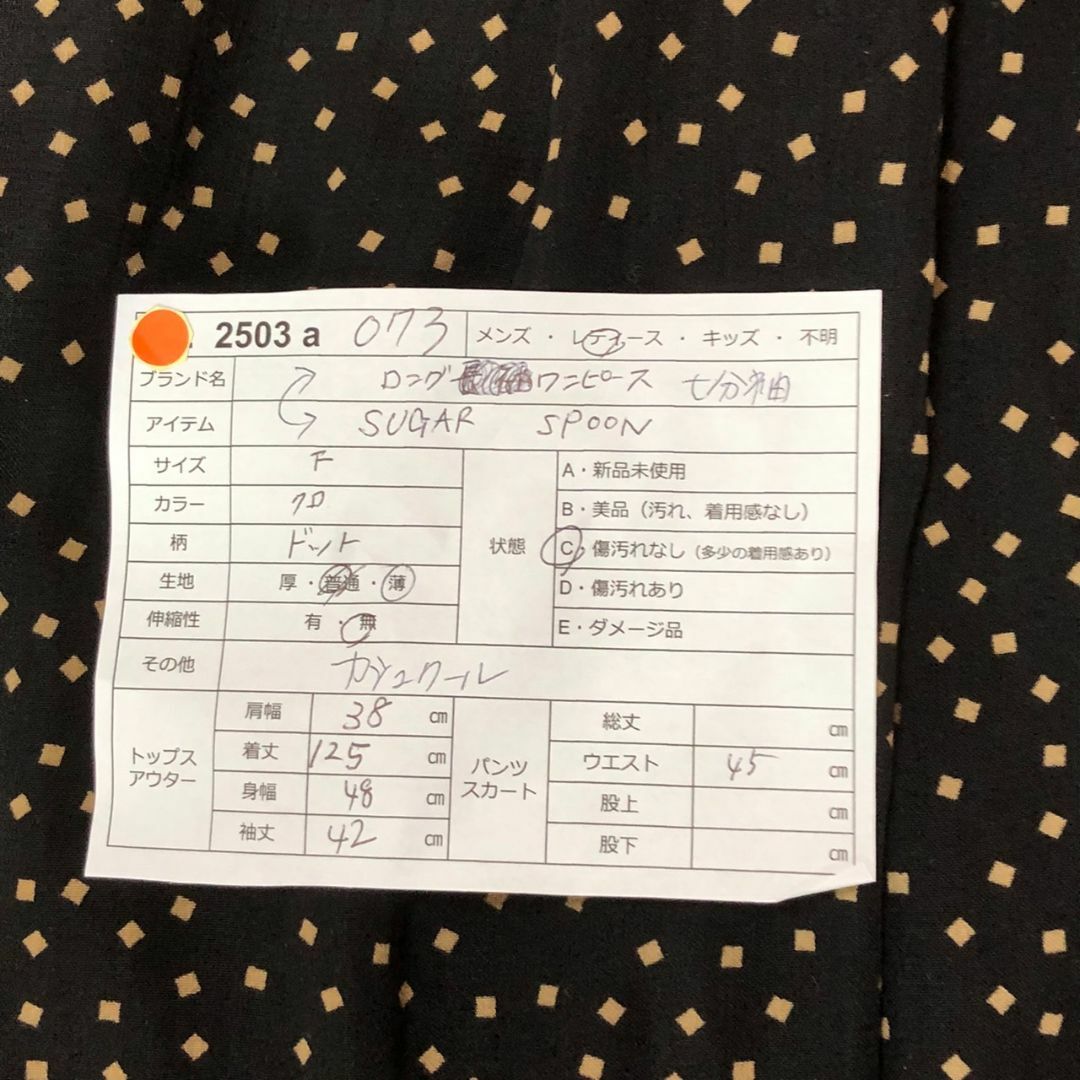 2503 a 073 メンズ ・ レディース ・ キッズ ・ 不明
ブランド名 ロング ワンピース 七分袖
アイテム SUGAR SPOON
サイズ F
カラー クロ
柄 ドット
生地 厚・普通・薄
伸縮性 有・無
状態
A・新品未使用
B・美品（汚れ、着用感なし）
C・傷汚れなし（多少の着用感あり）
D・傷汚れあり
E・ダメージ品
その他 カシュクール
トップス
アウター
肩幅 38 ㎝
着丈 125 ㎝
身幅 48 ㎝
袖丈 42 ㎝
パンツ
スカート
総丈 ㎝
ウエスト 45 ㎝
股上 ㎝
股下 ㎝